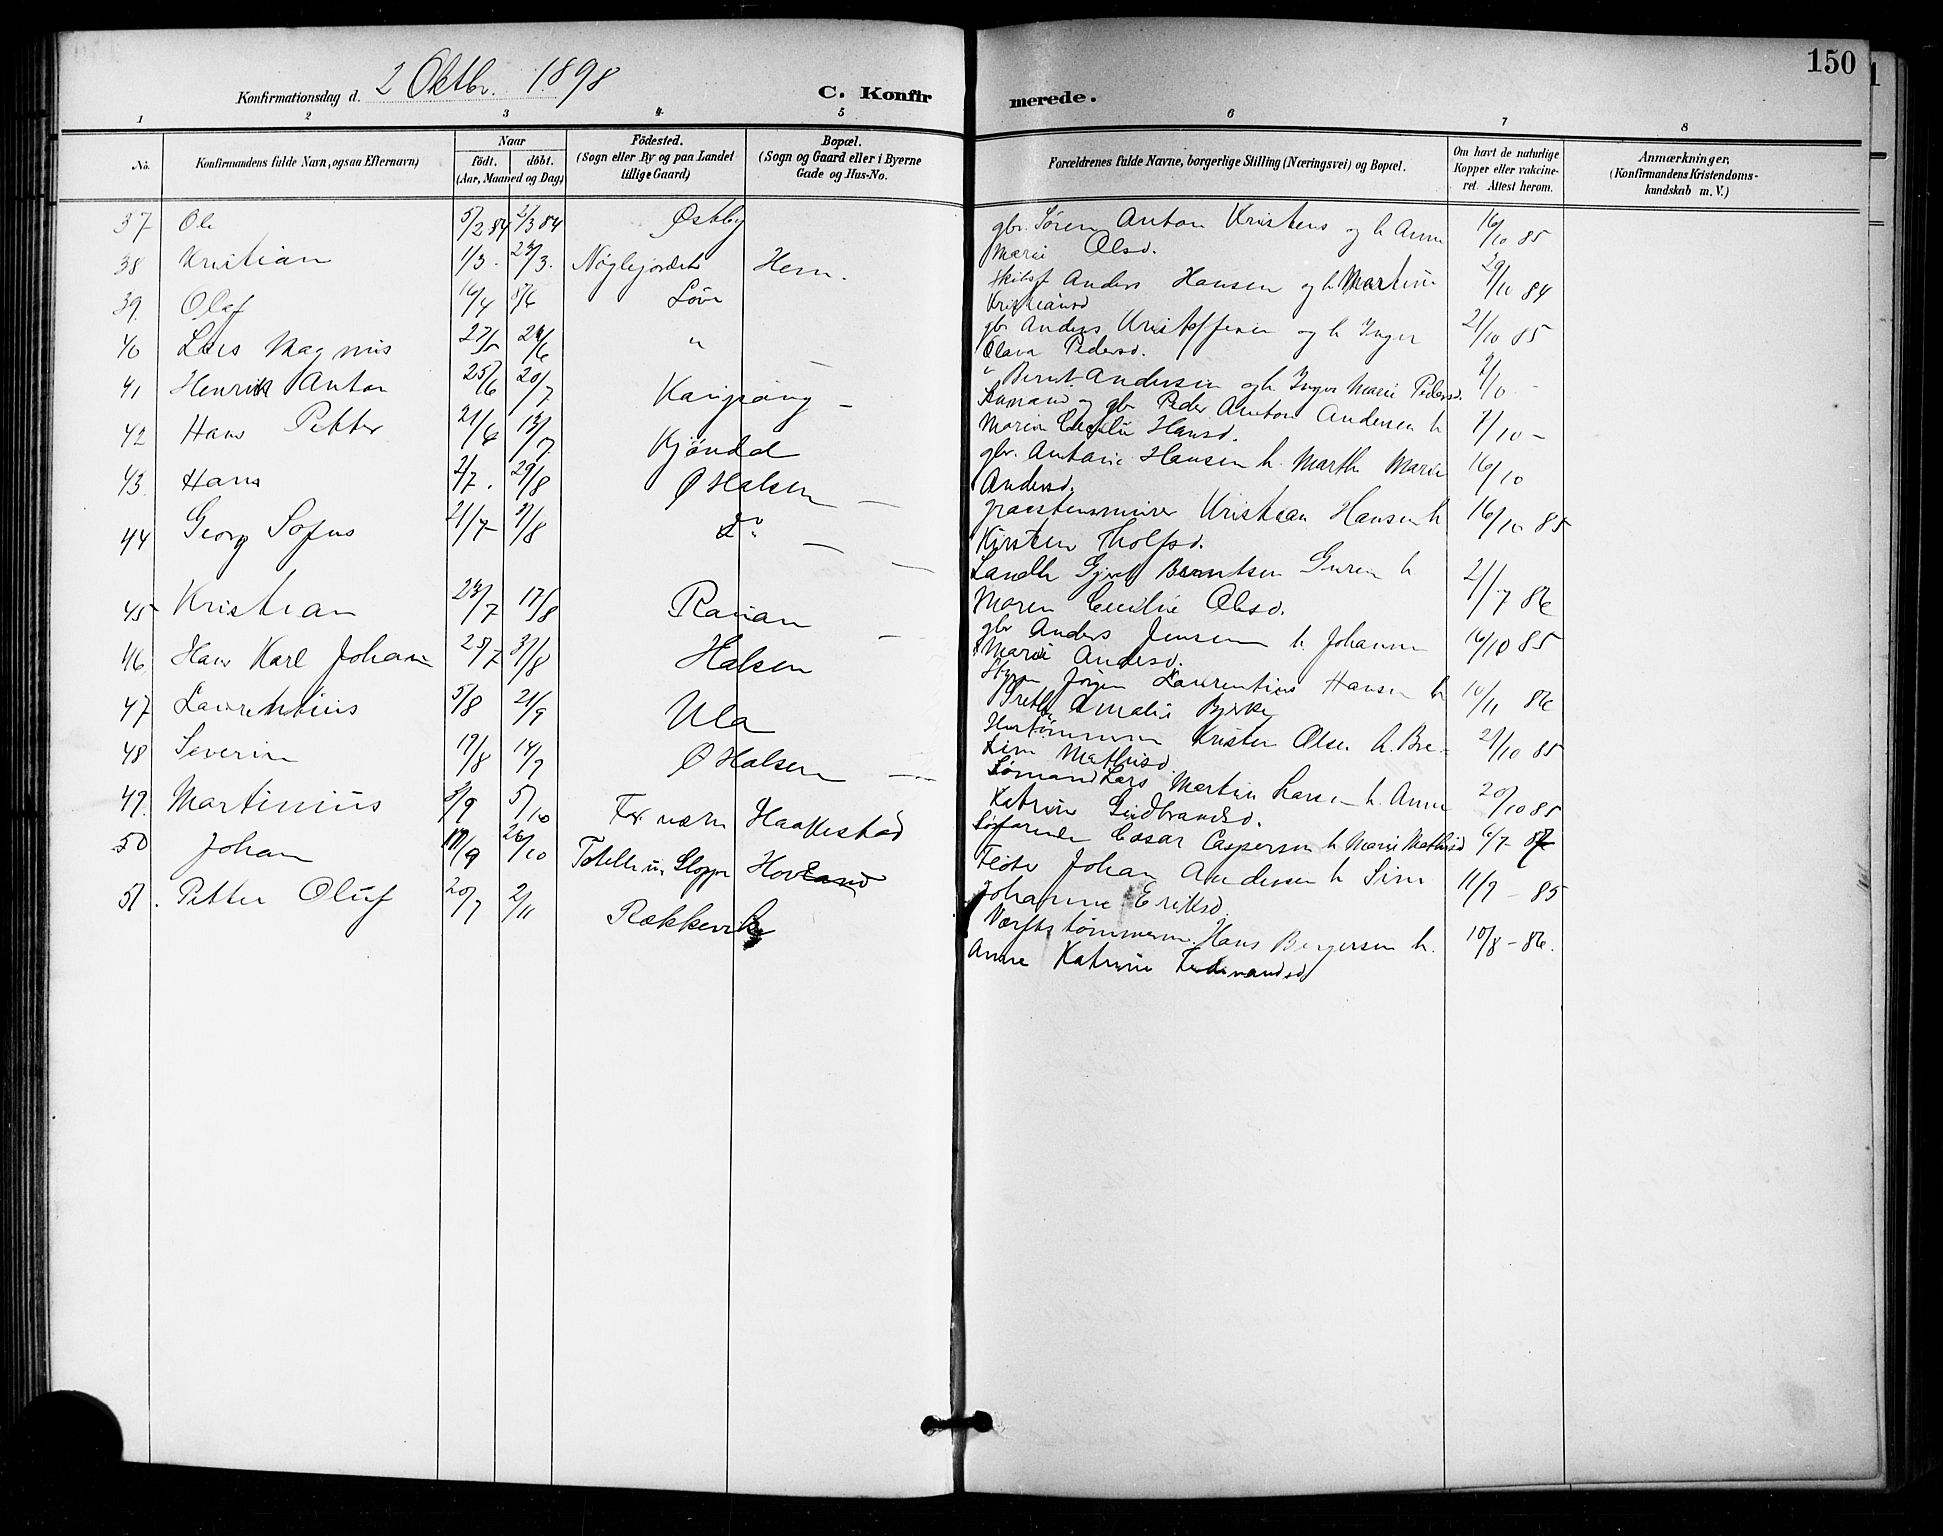 150
Konfirmationsdag d. 2 Oktbr. 1898
C. Konfirmerede.
1 2 3 4 5 6 7 8
No.
Konfirmandens fulde Navn, ogsaa Efternavn)
Naar
födt. döbt.
(Aar, Maaned og Dag)
Födested.
(Sogn eller By og paa Landet
tillige Gaard)
Bopæl.
(Sogn og Gaard eller i Byerne
Gade og Hus-No.
Forældrenes fulde Navne, borgerlige Stilling (Næringsvei) og Bopæl.
Om havt de naturlige
Kopper eller vakcine-
ret. Attest herom.
Anmærkninger.
(Konfirmandens Kristendoms-
kundskab m. V.)
37 Ole 5/2 84 2/3 84 Østby gbr. Søren Anton Kristens og h. Anne 16/10 85
Marie Olsd.
38 Kristian 1/3. 23/3. Nøglejordet Hem. Anders Hansen og h. Martine 29/11 84
Kristiansd
39. Olaf 16/4 8/6 Løve gbr Anders Kristoffersen og h. Inger 21/10 85
Olava Pedersd.
40 Lars Magnus 27/5 29/6 " " Bernt Andersen og h. Inger Marie Pedersd. 2/10 -
41 Henrik Anton 25/6 20/7 og gbr Peder Anton Andersen h. 2/10 -
Maren Cecilie Hansd.
42 Hans Petter 21/6 13/7 Kjøndal gbr. Antoni Hansen h. Marthe Marie 16/10
Andersd.
43. Hans 2/7. 29/8 Ø Halsen Kristian Hansen h. 16/10 85
Kirsten Tholfsd.
44 Georg Sofus 21/7 31/8 Do Berntsen h. 21/7 86
Maren Cecilie Olsd.
45 Kristian 23/7 17/8 Ravan gbr Anders Jensen h. Johanne 16/10 85
Marie Andersd.
46 Hans Karl Johan 28/7 31/8 Halsen Styrm Jörgen Laurentius Hansen h. 10/11 86
Grethe Amalie Bjerke
47 Laurentius 5/8 21/9 Ula Kristen Olsen h. Bre- 21/10 85
Mathisd
48 Severin 19/8 14/9 Ø Halsen Sømand Lars Martin Larsen h. Anne 20/10 85
Katrine Gudbrandsd.
49. Martinius 3/9 5/10 Haakestad Søfarende Cæsar Caspersen h. Marie Mathisd 6/7 -
50 Johan 26/10 Johan Andersen h. 11/9 - 85
Johanne Eriksd.
51. Petter Oluf 20/7 2/11 Rækkevik Værftstømmerm. Hans Bergersen h. 10/8 - 86.
Anne Katrine Ferdinandsd